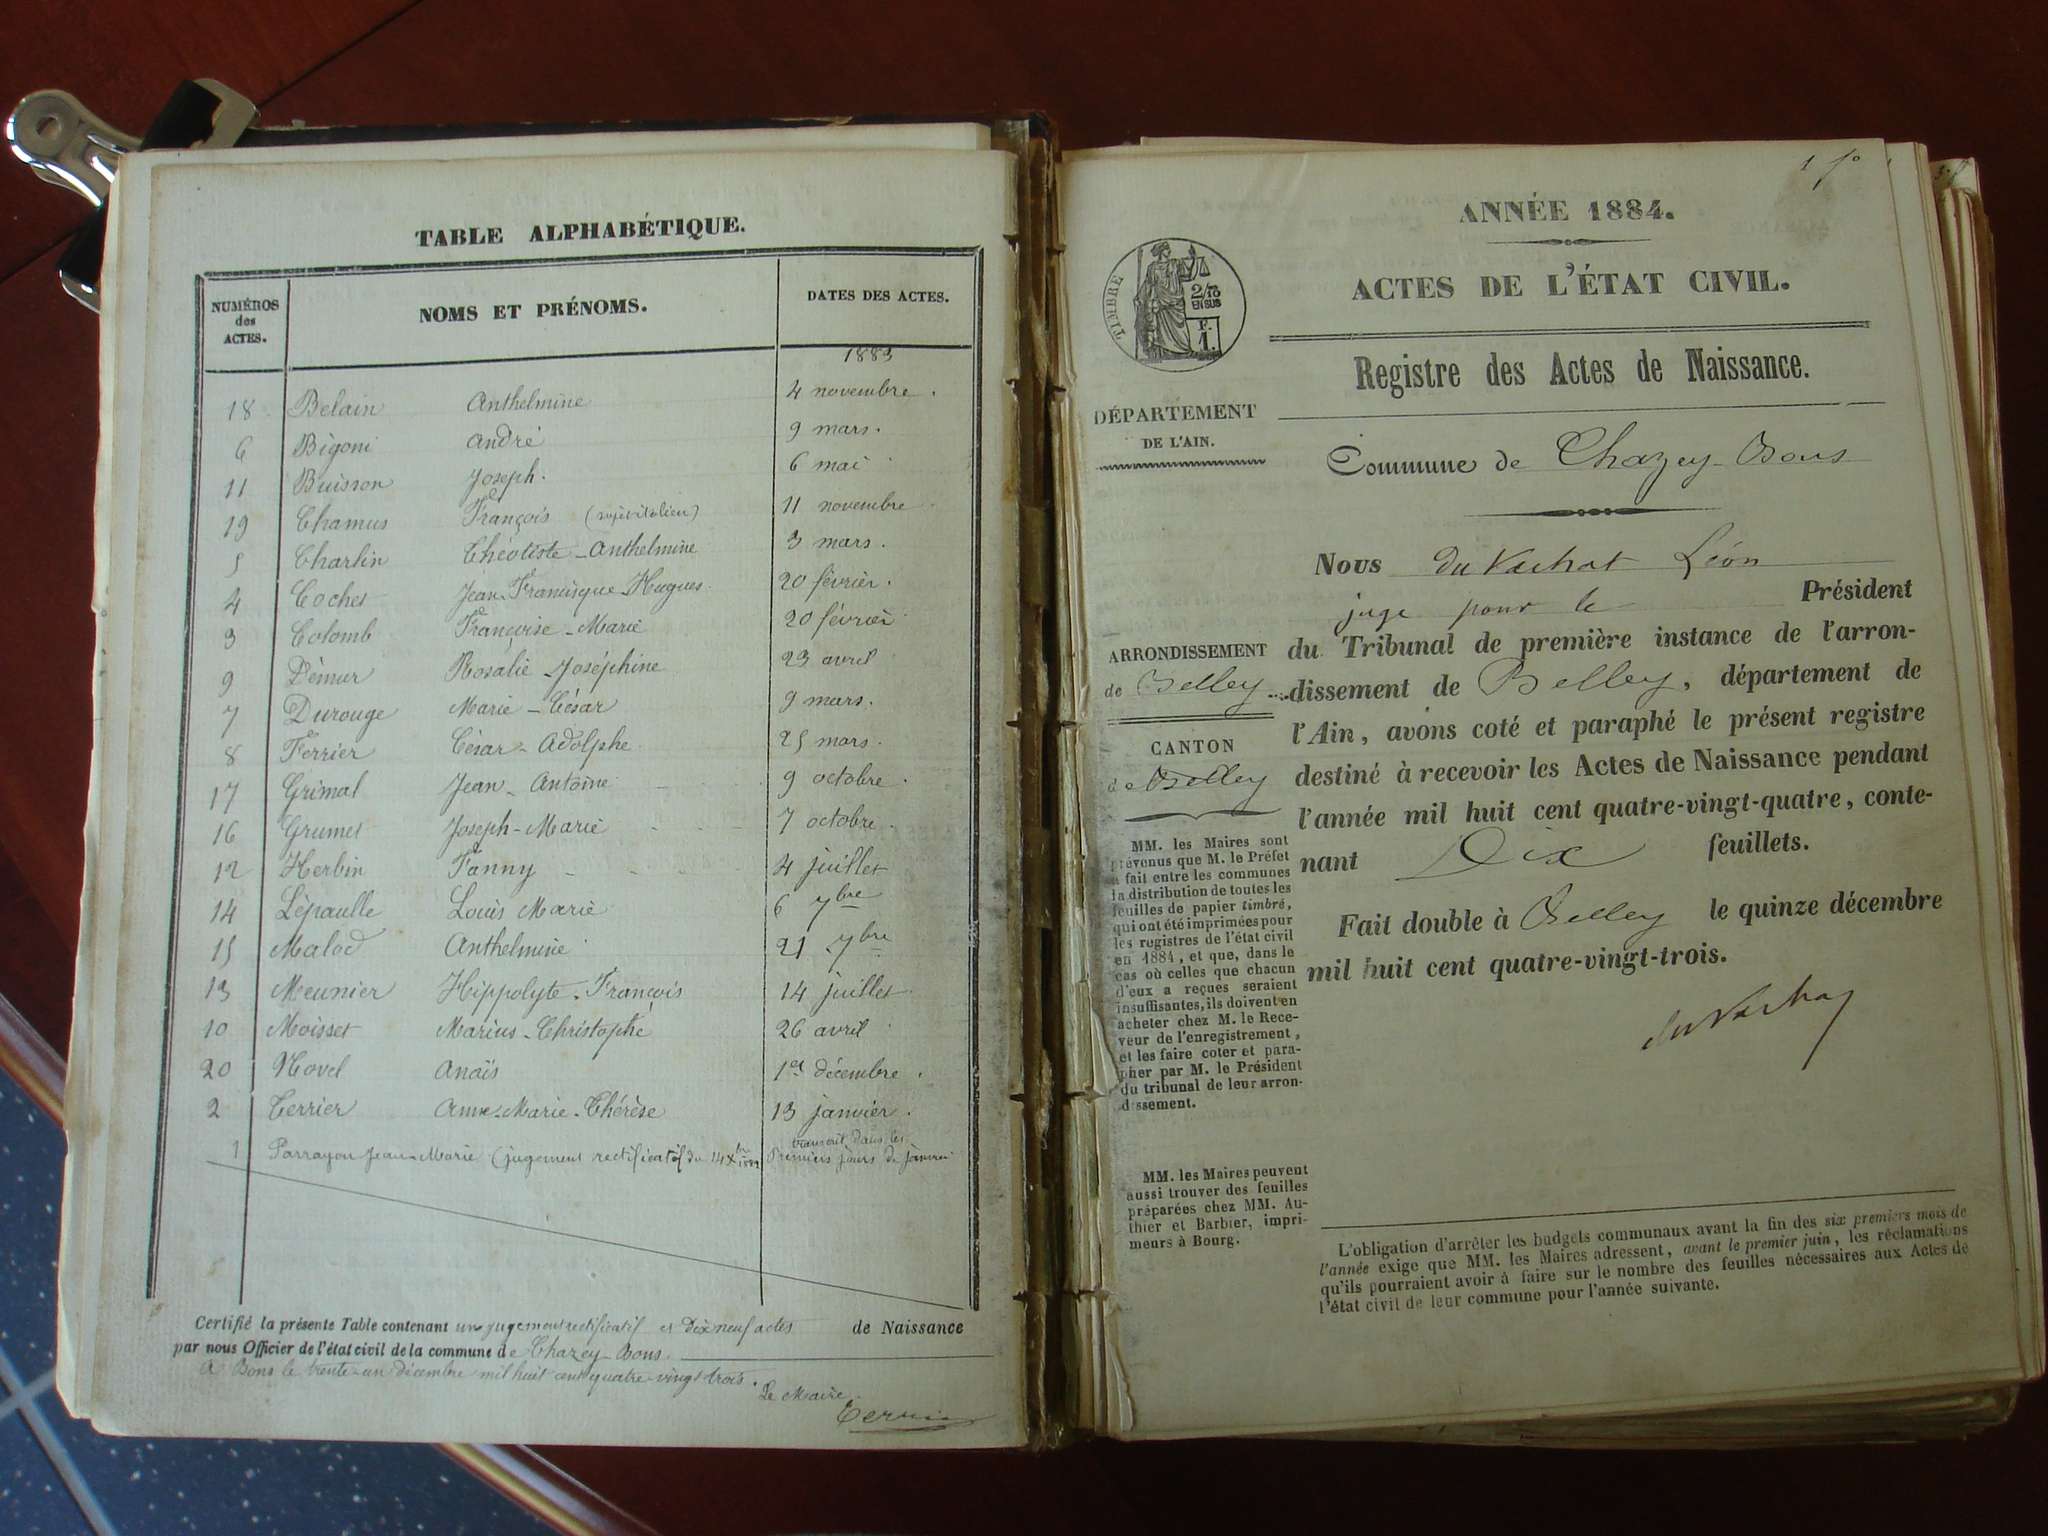 TABLE ALPHABÉTIQUE.
NUMÉROS
des
ACTES.
NOMS ET PRÉNOMS.
DATES DES ACTES.
1883
18 Belain Anthelmine 4 novembre.
6 Bigoni André 9 mars.
11 Buisson Joseph. 6 mai
19 Chamus François 11 novembre
5 Charlin Théotiste-Anthelmine 3 mars.
4 Cochet Jean-Francisque-Hugues. 20 février.
3 Colomb Françoise-Marie 20 février
9 Démur Rosalie-Joséphine 23 avril
7 Durouge Marie-César 9 mars.
8 Ferrier César-Adolphe 25 mars.
17 Grimal Jean-Antoine 9 octobre.
16 Grumet Joseph-Marie 7 octobre.
12 Herbin Fanny 4 juillet
14 Lépaulle Louis Marie 6 7bre
15 Malod Anthelmine 21 7bre
13 Meunier Hippolyte-François 14 juillet
10 Moisset Marius-Christophe 26 avril
20 Novel Anaïs 1er décembre.
2 Terrier Anne-Marie-Thérèse 13 janvier.
transcrit dans les
1 Parrayon Jean-Marie (jugement rectificatif du 14 Xbre 1882 Premiers jours de janvier
Certifié la présente Table contenant un jugement rectificatif et dix neuf actes de Naissance
par nous Officier de l'état civil de la commune de Chazey-Bons.
A Bons le trente-un décembre mil huit cent quatre-vingt trois.
Le Maire
1 fo
ANNÉE 1884.
ACTES DE L'ÉTAT CIVIL.
TIMBRE
2/10
EN SUS
F.
1.
Registre des Actes de Naissance.
DÉPARTEMENT
DE L'AIN.
Commune de Chazey-Bons
Nous du Vachat Léon
juge pour le Président
du Tribunal de première instance de l'arron-
dissement de Belley, département de
l'Ain, avons coté et paraphé le présent registre
destiné à recevoir les Actes de Naissance pendant
l'année mil huit cent quatre-vingt-quatre, conte-
nant Dix feuillets.
Fait double à Belley le quinze décembre
mil huit cent quatre-vingt-trois.
du Vachat
ARRONDISSEMENT
de Belley
CANTON
de Belley
MM. les Maires sont
prévenus que M. le Préfet
a fait entre les communes
la distribution de toutes les
feuilles de papier timbré,
qui ont été imprimées pour
les registres de l'état civil
en 1884, et que, dans le
cas où celles que chacun
d'eux a reçues seraient
insuffisantes, ils doivent en
acheter chez M. le Rece-
veur de l'enregistrement,
et les faire coter et para-
pher par M. le Président
du tribunal de leur arron-
dissement.
MM. les Maires peuvent
aussi trouver des feuilles
préparées chez MM. Au-
thier et Barbier, impri-
meurs à Bourg.
L'obligation d'arrêter les budgets communaux avant la fin des six premiers mois de
l'année exige que MM. les Maires adressent, avant le premier juin, les réclamations
qu'ils pourraient avoir à faire sur le nombre des feuilles nécessaires aux Actes de
l'état civil de leur commune pour l'année suivante.